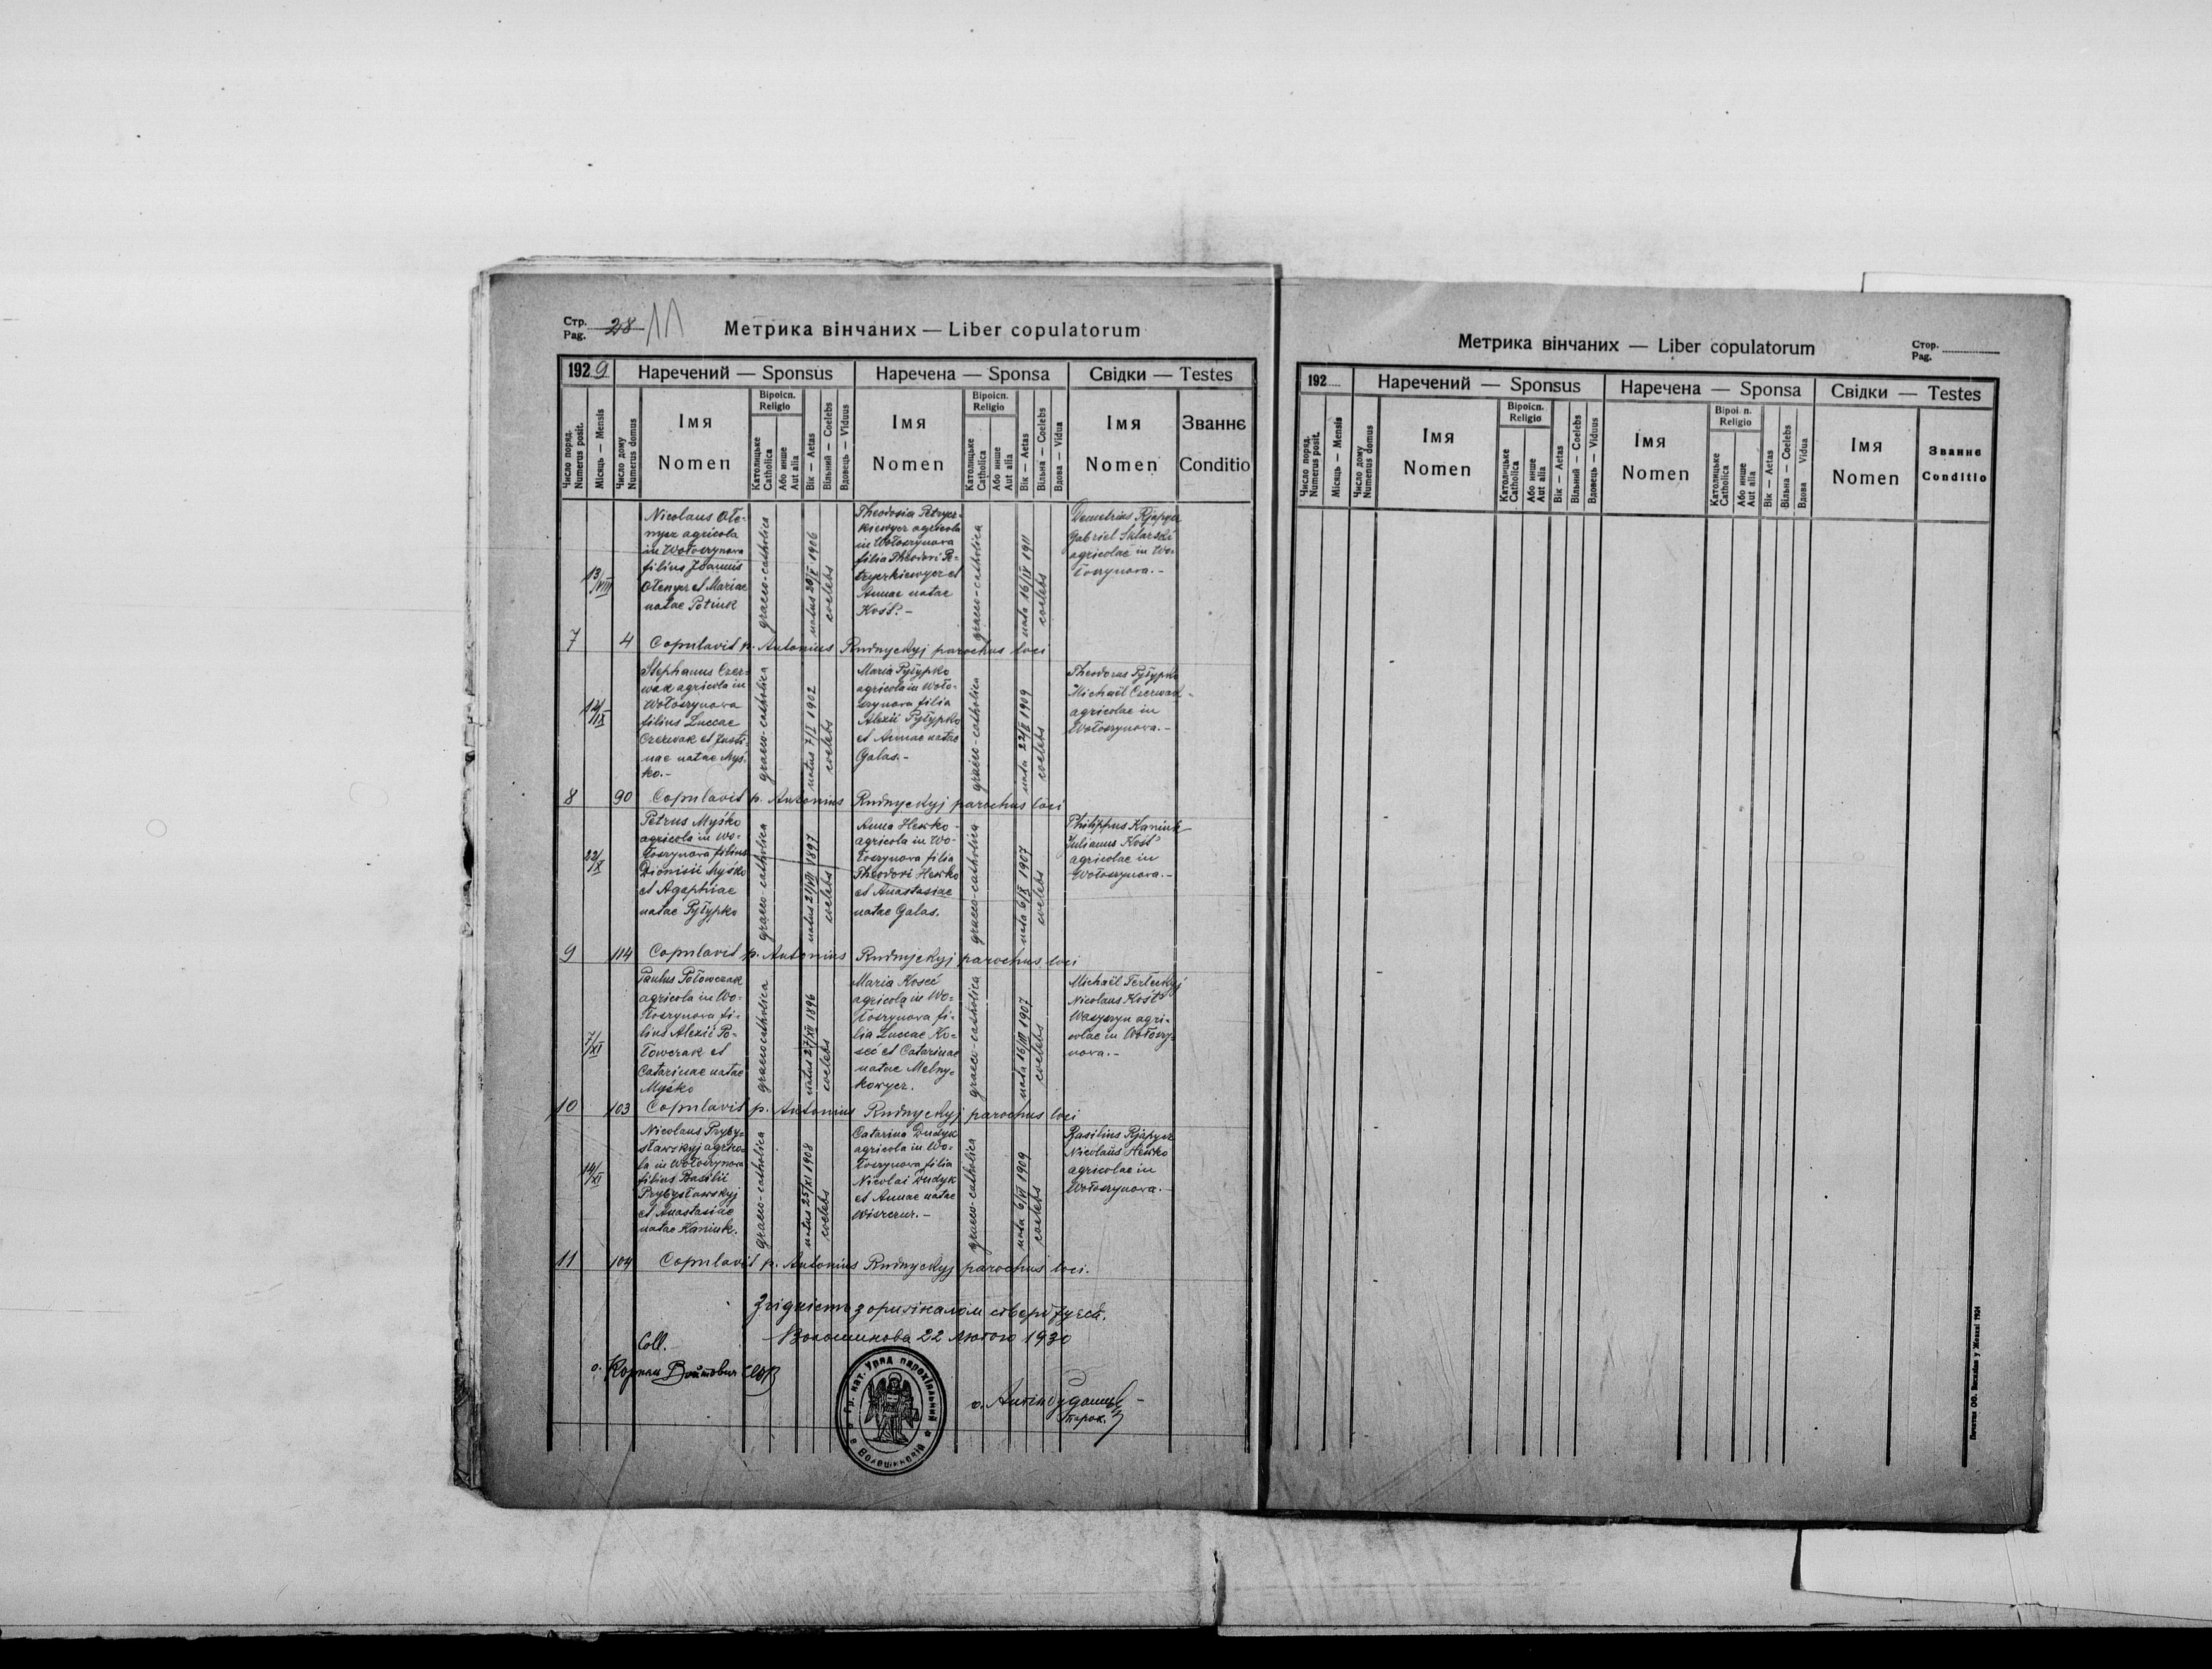 Стр.
Pag. 28 11
Метрика вінчаних — Liber copulatorum
1929
Наречений — Sponsus
Наречена — Sponsa
Свідки — Testes
Число поряд.
Numerus posit.
Місяць — Mensis
Число дому
Numerus domus
Імя
Nomen
Віроісп.
Religio
Католицьке
Catholica
Або инше
Aut alia
Вік — Aetas
Вільний — Coelebs
Вдовець — Viduus
Імя
Nomen
Віроісп.
Religio
Католицьке
Catholica
Або инше
Aut alia
Вік — Aetas
Вільна — Coelebs
Вдова — Vidua
Імя
Nomen
Званнє
Conditio
7
13/VIII
4
Nicolaus Ołe-
nycz agricola
in Wołoszynowa
filius Joannis
Ołenycz et Mariae
natae Potiuk
graeco-catholica
natus 20/X 1906
coelebs
Theodosia Petrycz-
kiewycz agricola
in Wołoszynowa
filia Theodori Pe-
tryczkiewycz et
Annae natae
Kość. -
graeco-catholica
nata 16/IV 1911
coelebs
Demetrius Rjapycz
Gabriel Sklarski
agricolae in Wo-
łoszynowa. -
Copulavit p. Antonius Rudnyckyj parochus loci
8
12/IX
90
Stephanus Czer-
wak agricola in
Wołoszynowa
filius Luccae
Czerwak et Justi-
nae natae Myś-
ko. -
graeco-catholica
natus 7/I 1902
coelebs
Maria Pyłypko
agricola in Woło-
szynowa filia
Alexii Pyłypko
et Annae natae
Galas. -
graeco-catholica
nata 22/X 1909
coelebs
Theodorus Pyłypko
Michaël Czerwak -
agricolae in
Wołoszynowa. -
Copulavit p. Antonius Rudnyckyj parochus loci
9
22/X
114
Petrus Myśko
agricola in Wo-
łoszynowa filius
Dionisii Myśko
et Agaphiae
natae Pyłypko
graeco-catholica
natus 21/VII 1897
coelebs
Anna Hewko -
agricola in Wo-
łoszynowa filia
Theodori Hewko
et Anastasiae
natae Galas.
graeco-catholica
nata 6/IX 1907
coelebs
Philippus Kaniuk
Julianus Kość
agricolae in
Wołoszynowa. -
Copulavit p. Antonius Rudnyckyj parochus loci
10
7/XI
103
Paulus Połowczak
agricola in Wo-
łoszynowa fi-
lius Alexii Po-
łowczak et
Catarinae natae
Myśko
graeco catholica
natus 27/XII 1896
coelebs
Maria Kosć
agricola in Wo-
łoszynowa fi-
lia Luccae Ko-
sć et Catarinae
natae Melny-
kowycz.
graeco-catholica
nata 16/III 1907
coelebs
Michaël Terłeckyj
Nicolaus Kość
Wasyszyn agri-
colae in Wołoszy-
nowa. -
Copulavit p. Antonius Rudnyckyj parochus loci
11
14/XI
104
Nicolaus Pryby-
sławskyj agrico-
la in Wołoszynowa
filius Basilii
Prybysławskyj
et Anastasiae
natae Kaniuk.
graeco-catholica
natus 25/XI 1908
coelebs
Catarina Dudyk
agricola in Wo-
łoszynowa filia
Nicolai Dudyk
et Annae natae
graeco-catholica
nata 6/VI 1909
coelebs
Basilius Rjapycz
Nicolaus Hewko
agricolae in
Wołoszynowa. -
Copulavit p. Antonius Rudnyckyj parochus loci.
Згідність з оригіналом стверджуєся.
Волошинова 22 лютого 1930
Coll.
о. Корнило Войтович
Гр. кат. Уряд парохіяльний
в Волошиновій
о. Антін
парох.
Метрика вінчаних — Liber copulatorum
Стор.
Pag.
192
Наречений — Sponsus
Наречена — Sponsa
Свідки — Testes
Число поряд.
Numerus posit.
Місяць — Mensis
Число дому
Numerus domus
Імя
Nomen
Віроісп.
Religio
Католицьке
Catholica
Або инше
Aut alia
Вік — Aetas
Вільний — Coelebs
Вдовець — Viduus
Імя
Nomen
Religio
Католицьке
Catholica
Або инше
Aut alia
Вік — Aetas
Вільна — Coelebs
Вдова — Vidua
Імя
Nomen
Званнє
Conditio
Печатня ОО. Василіян у Жовкві 1924